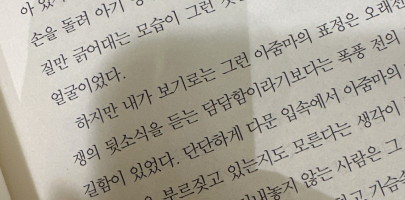 손을 돌려 아기
질만 긁어대는 모습이 그런
얼굴이었다.
하지만 내가 보기로는 그런 아줌마의 표정은 오래전
쟁의 뒷소식을 듣는 담담함이라기보다는 폭풍 전의
길함이 있었다. 단단하게 다문 입속에서 아줌마의
부르짖고 있는지도 모른다는 생각이
않는 사람은 그